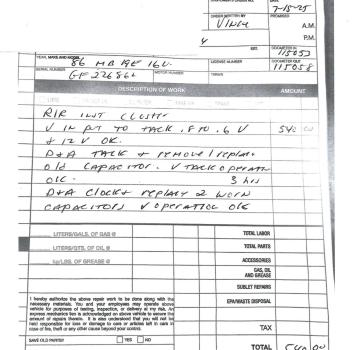 CUSTOMER'S ORDER NO.
DATE
7-15-25
ORDER WRITTEN BY
PROMISED
VINCE
A.M.
P.M.
4
EST.
ODOMETER IN
115053
YEAR, MAKE AND MODEL
86 MB RE 16V.
LICENSE NUMBER
ODOMETER OUT
115058
SERIAL NUMBER
GF226862
MOTOR NUMBER
TERMS
DESCRIPTION OF WORK
AMOUNT
R+R INST CLUSTER
V IN PT TO TACK .8 TO .6 V
540 00
& 12 V OK.
D+A TACK & REMOVE/REPLACE
OLD CAPACITOR. V TACK OPERATION
OK. 3 hrs
D+A CLOCK & REPLACE 2 WORN
CAPACITORS V OPERATION OK
LITERS/GALS. OF GAS @
TOTAL LABOR
LITERS/QTS. OF OIL @
TOTAL PARTS
kg/LBS. OF GREASE @
ACCESSORIES
GAS, OIL
AND GREASE
SUBLET REPAIRS
I hereby authorize the above repair work to be done along with the
necessary materials. You and your employees may operate above
vehicle for purposes of testing, inspection, or delivery at my risk. An
express mechanic's lien is acknowledged on above vehicle to secure the
amount of repairs thereto. It is also understood that you will not be
held responsible for loss or damage to cars or articles left in cars in
case of fire, theft or any other cause beyond your control.
EPA/WASTE DISPOSAL
TAX
SAVE OLD PARTS?
YES
NO
TOTAL
540.00